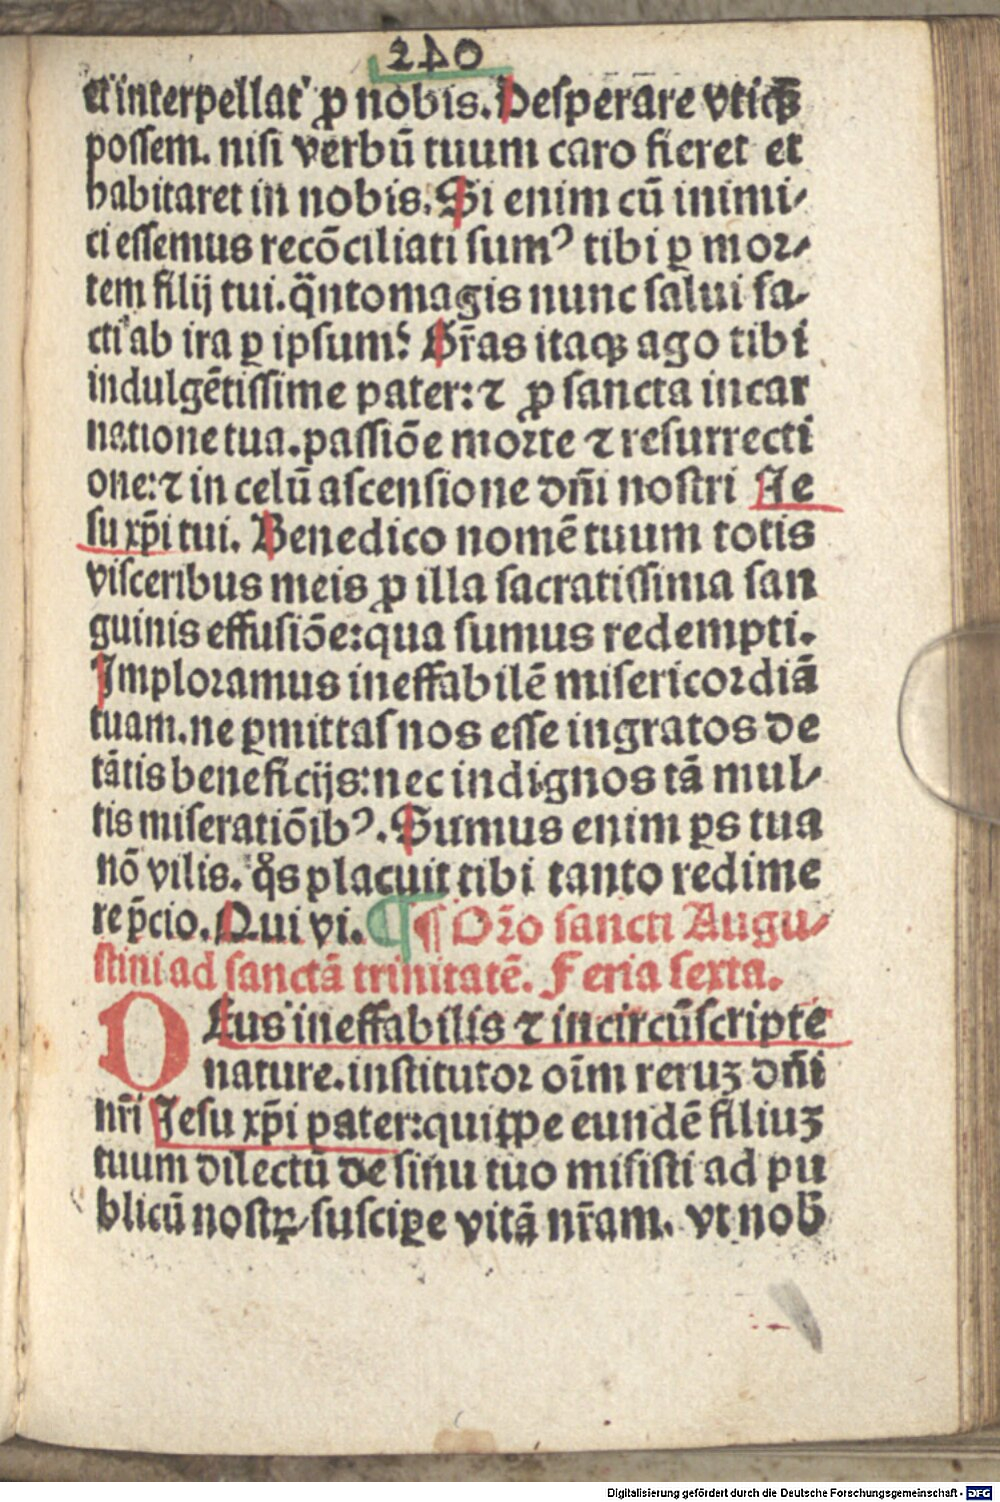 240
et interpellat' ꝓ nobis. Desperare vtiqꝫ
possem. nisi verbū tuum caro fieret et
habitaret in nobis. Si enim cū inimi-
ci essemus recōciliati sumꝰ tibi ꝑ mor-
tem filij tui. q̄ntomagis nunc salui fa-
cti ab ira ꝑ ipsum? Gr̄as itaqꝫ ago tibi
indulgētissime pater: ⁊ ꝓ sancta incar
natione tua. passiōe morte ⁊ resurrecti
one: ⁊ in celū ascensione dn̄i nostri Je
su xp̄i tui. Benedico nomē tuum totis
visceribus meis ꝓ illa sacratissima san
guinis effusiōe: qua sumus redempti.
Imploramus ineffabilē misericordiā
tuam. ne ꝑmittas nos esse ingratos de
tātis beneficijs: nec indignos tā mul-
tis miseratiōibꝰ. Sumus enim ꝑs tua
nō vilis. q̄s placuit tibi tanto redime
re p̄cio. Qui vi. ¶ Or̄o sancti Augu-
stini ad sanctā trinitatē. Feria sexta.
DEus ineffabilis ⁊ incircūscripte
nature. institutor oīm reruꝫ dn̄i
nr̄i Jesu xp̄i pater: quippe eundē filiuꝫ
tuum dilectū de sinu tuo misisti ad pu
blicū nostrꝝ suscipe vitā nr̄am. vt nob̄
Digitalisierung gefördert durch die Deutsche Forschungsgemeinschaft - DFG